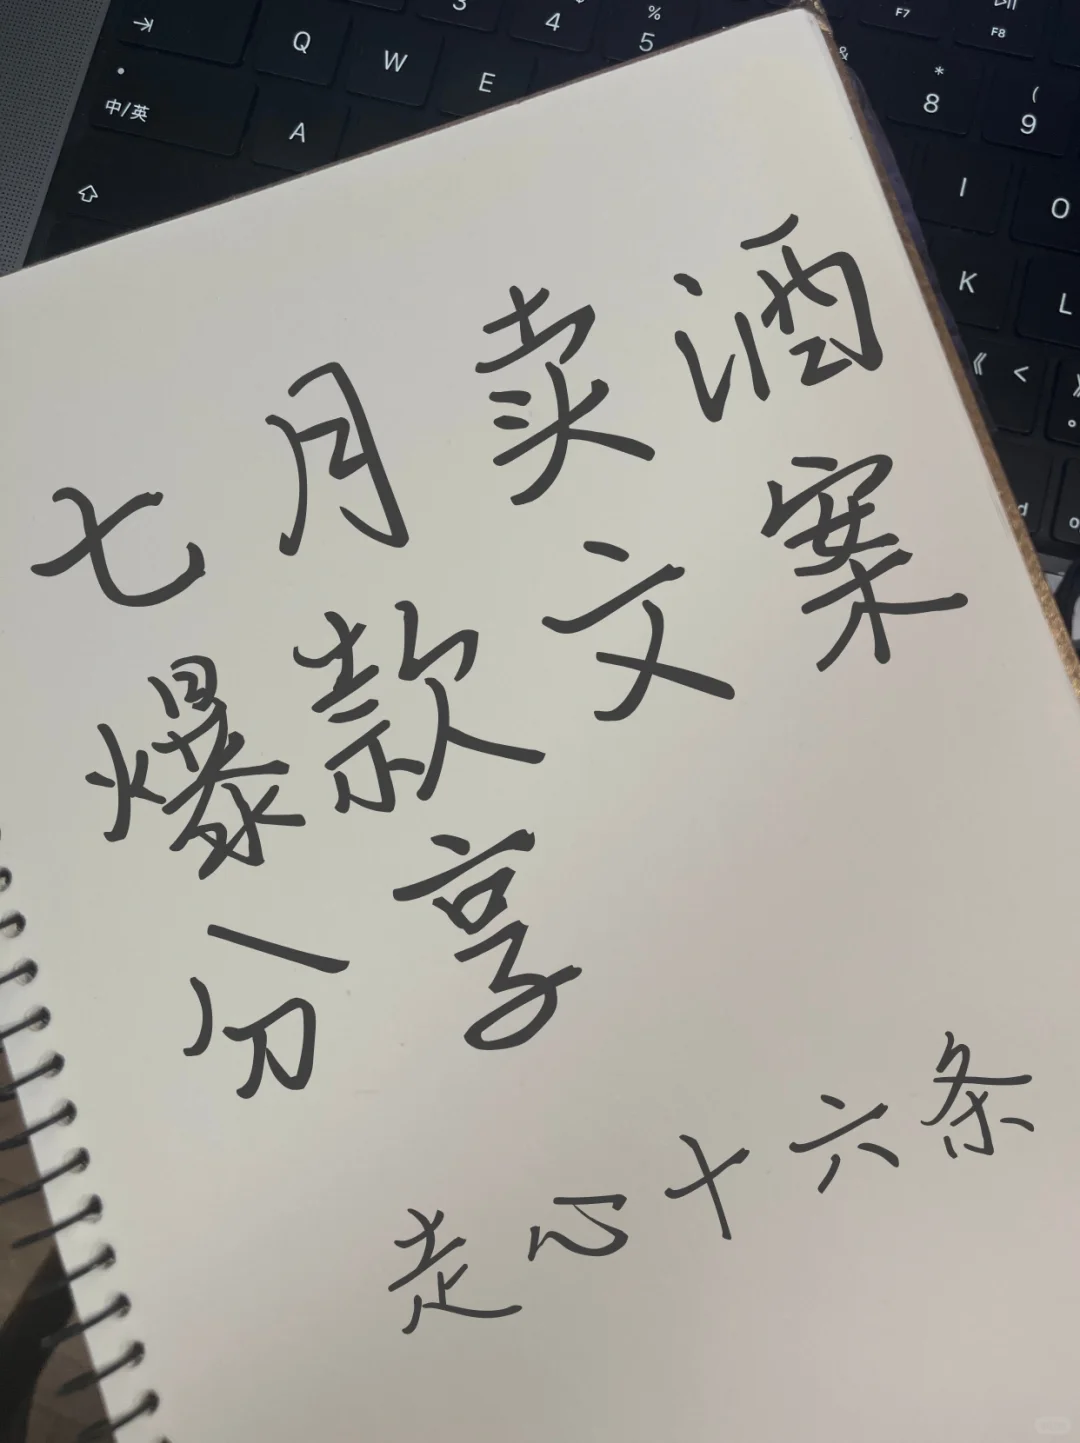 ⇥ Q W E 3 4 % 5 F7 F8
中/英 A & * 8 ( 9
I O
K L
《 < 》 。
七月卖酒
爆款文案
分享
走心十六条